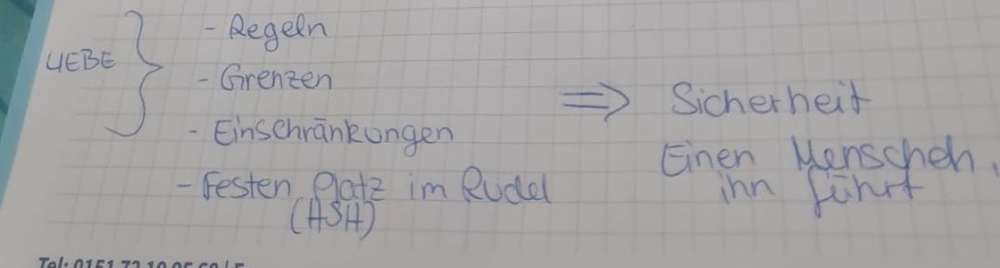 LIEBE
- Regeln
- Grenzen
- Einschränkungen
- Festen Platz im Rudel
(HSH)
⇒ Sicherheit
Einen Menschen,
ihn führt
Tel: 0151 72 10 95